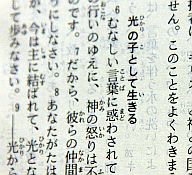 せん。このことをよくわきま
光の子として生きる
6 むなしい言葉に惑わされて
の行いのゆえに、神の怒りは不
です。7 だから、彼らの仲間
うにしなさい。8 あなたがたは
が、今は主に結ばれて、光とな
して歩みなさい。9 ―光か